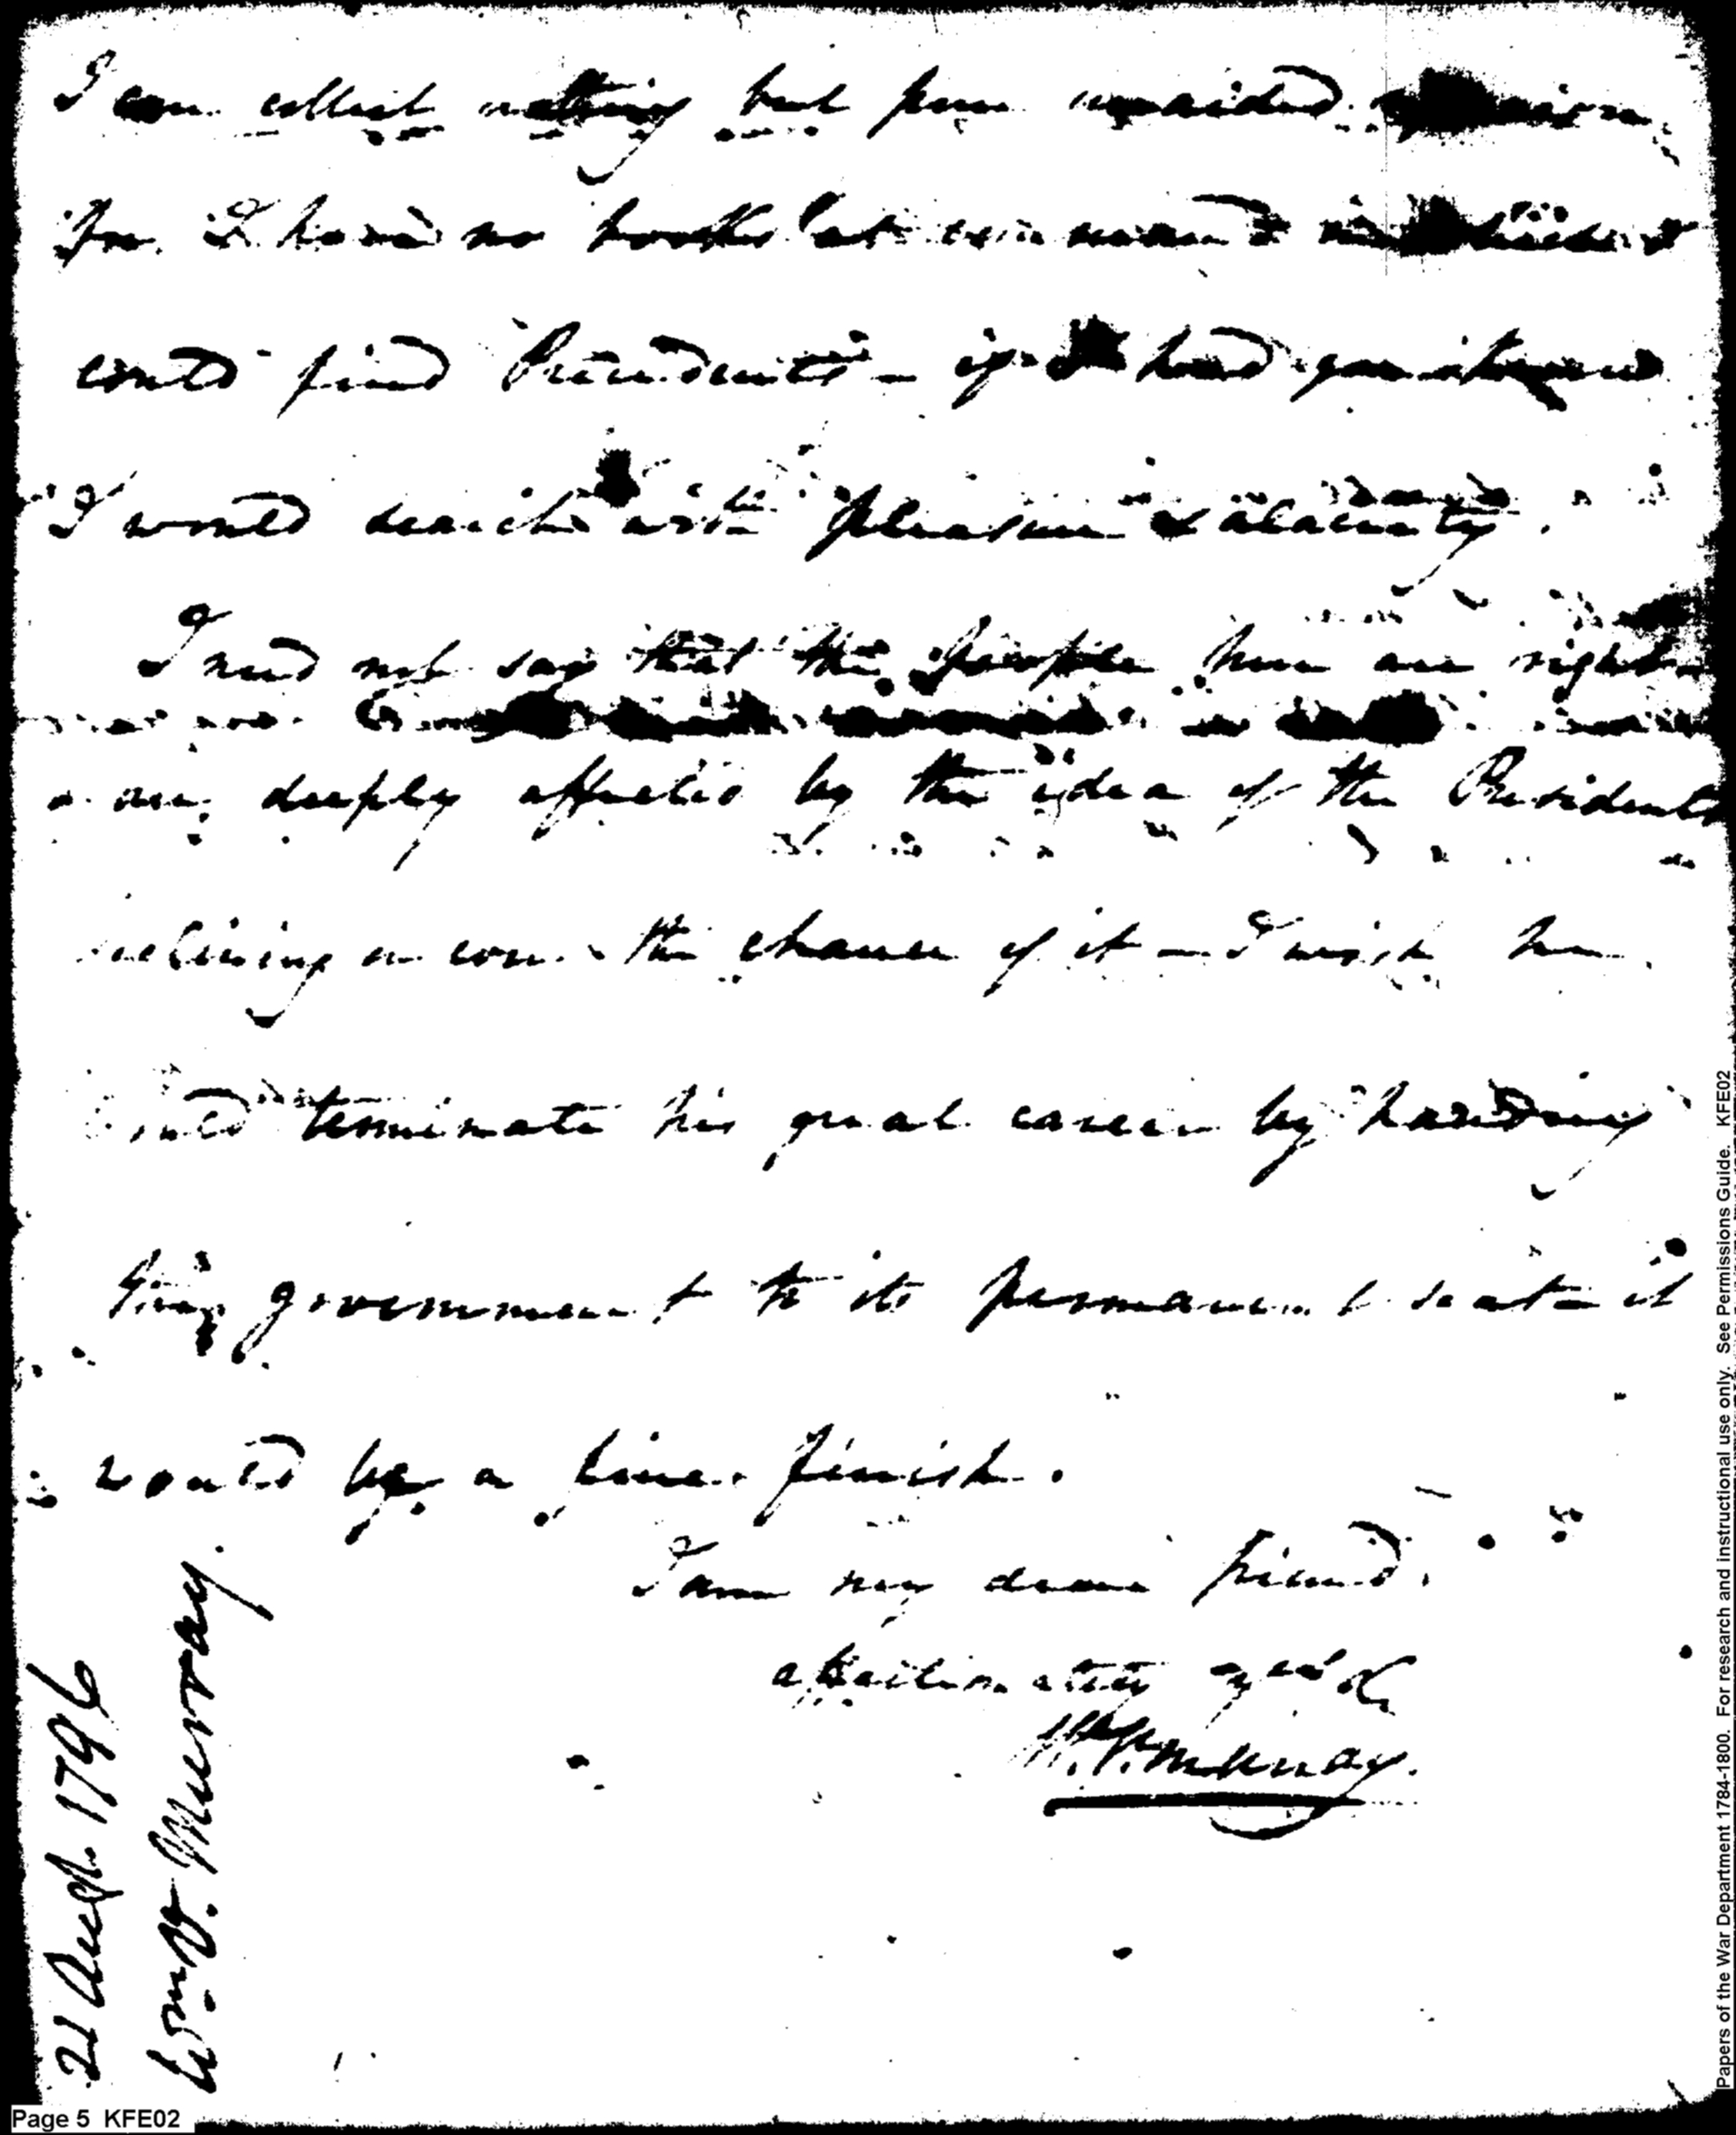 I can collect nothing but pure unaided opinion
for I have no books at command in which I
could find Precedents - if I had
I would search with pleasure & alacrity.
I need not say that the people here are right
are deeply affected by the idea of the Presidents
declining or even the chance of it - I wish he
could terminate his great career by handing
government to its permanent seat - it
would be a fine finish.
I am my dear friend
affectionately yrs &c
W. V. Murray.
21 Augt. 1796
Wm. V. Murray.
Page 5 KFE02
Papers of the War Department 1784-1800. For research and instructional use only. See Permissions Guide. KFE02